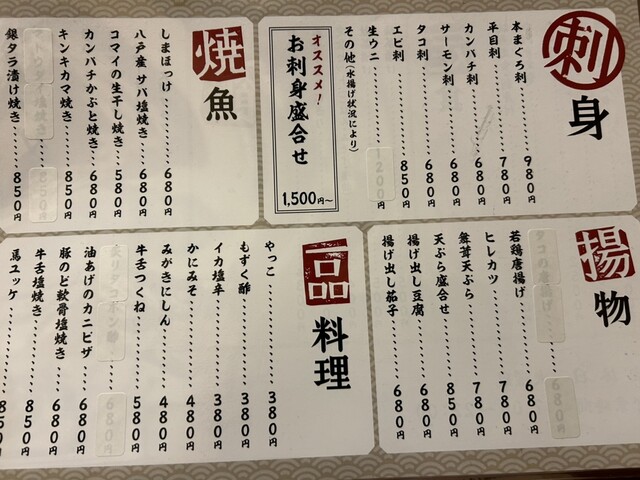 刺身
本まぐろ刺 980円
平目刺 780円
カンパチ刺 680円
サーモン刺 680円
タコ刺 680円
エビ刺 850円
生ウニ 1200円
その他(水揚げ状況により)
オススメ!
お刺身盛合せ
1,500円~
焼魚
しまほっけ 680円
八戸産 サバ塩焼き 680円
コマイの生干し焼き 580円
カンパチかぶと焼き 680円
キンキカマ焼き 850円
850円
銀タラ漬け焼き 850円
揚物
680円
若鶏唐揚げ 680円
ヒレカツ 780円
舞茸天ぷら 780円
天ぷら盛合せ 850円
揚げ出し豆腐 680円
揚げ出し茄子 680円
一品料理
やっこ 380円
もずく酢 380円
イカ塩辛 380円
かにみそ 480円
みがきにしん 480円
牛舌つくね 580円
680円
油あげのカニピザ 680円
豚のど軟骨塩焼き 680円
牛舌塩焼き 850円
馬ユッケ 850円